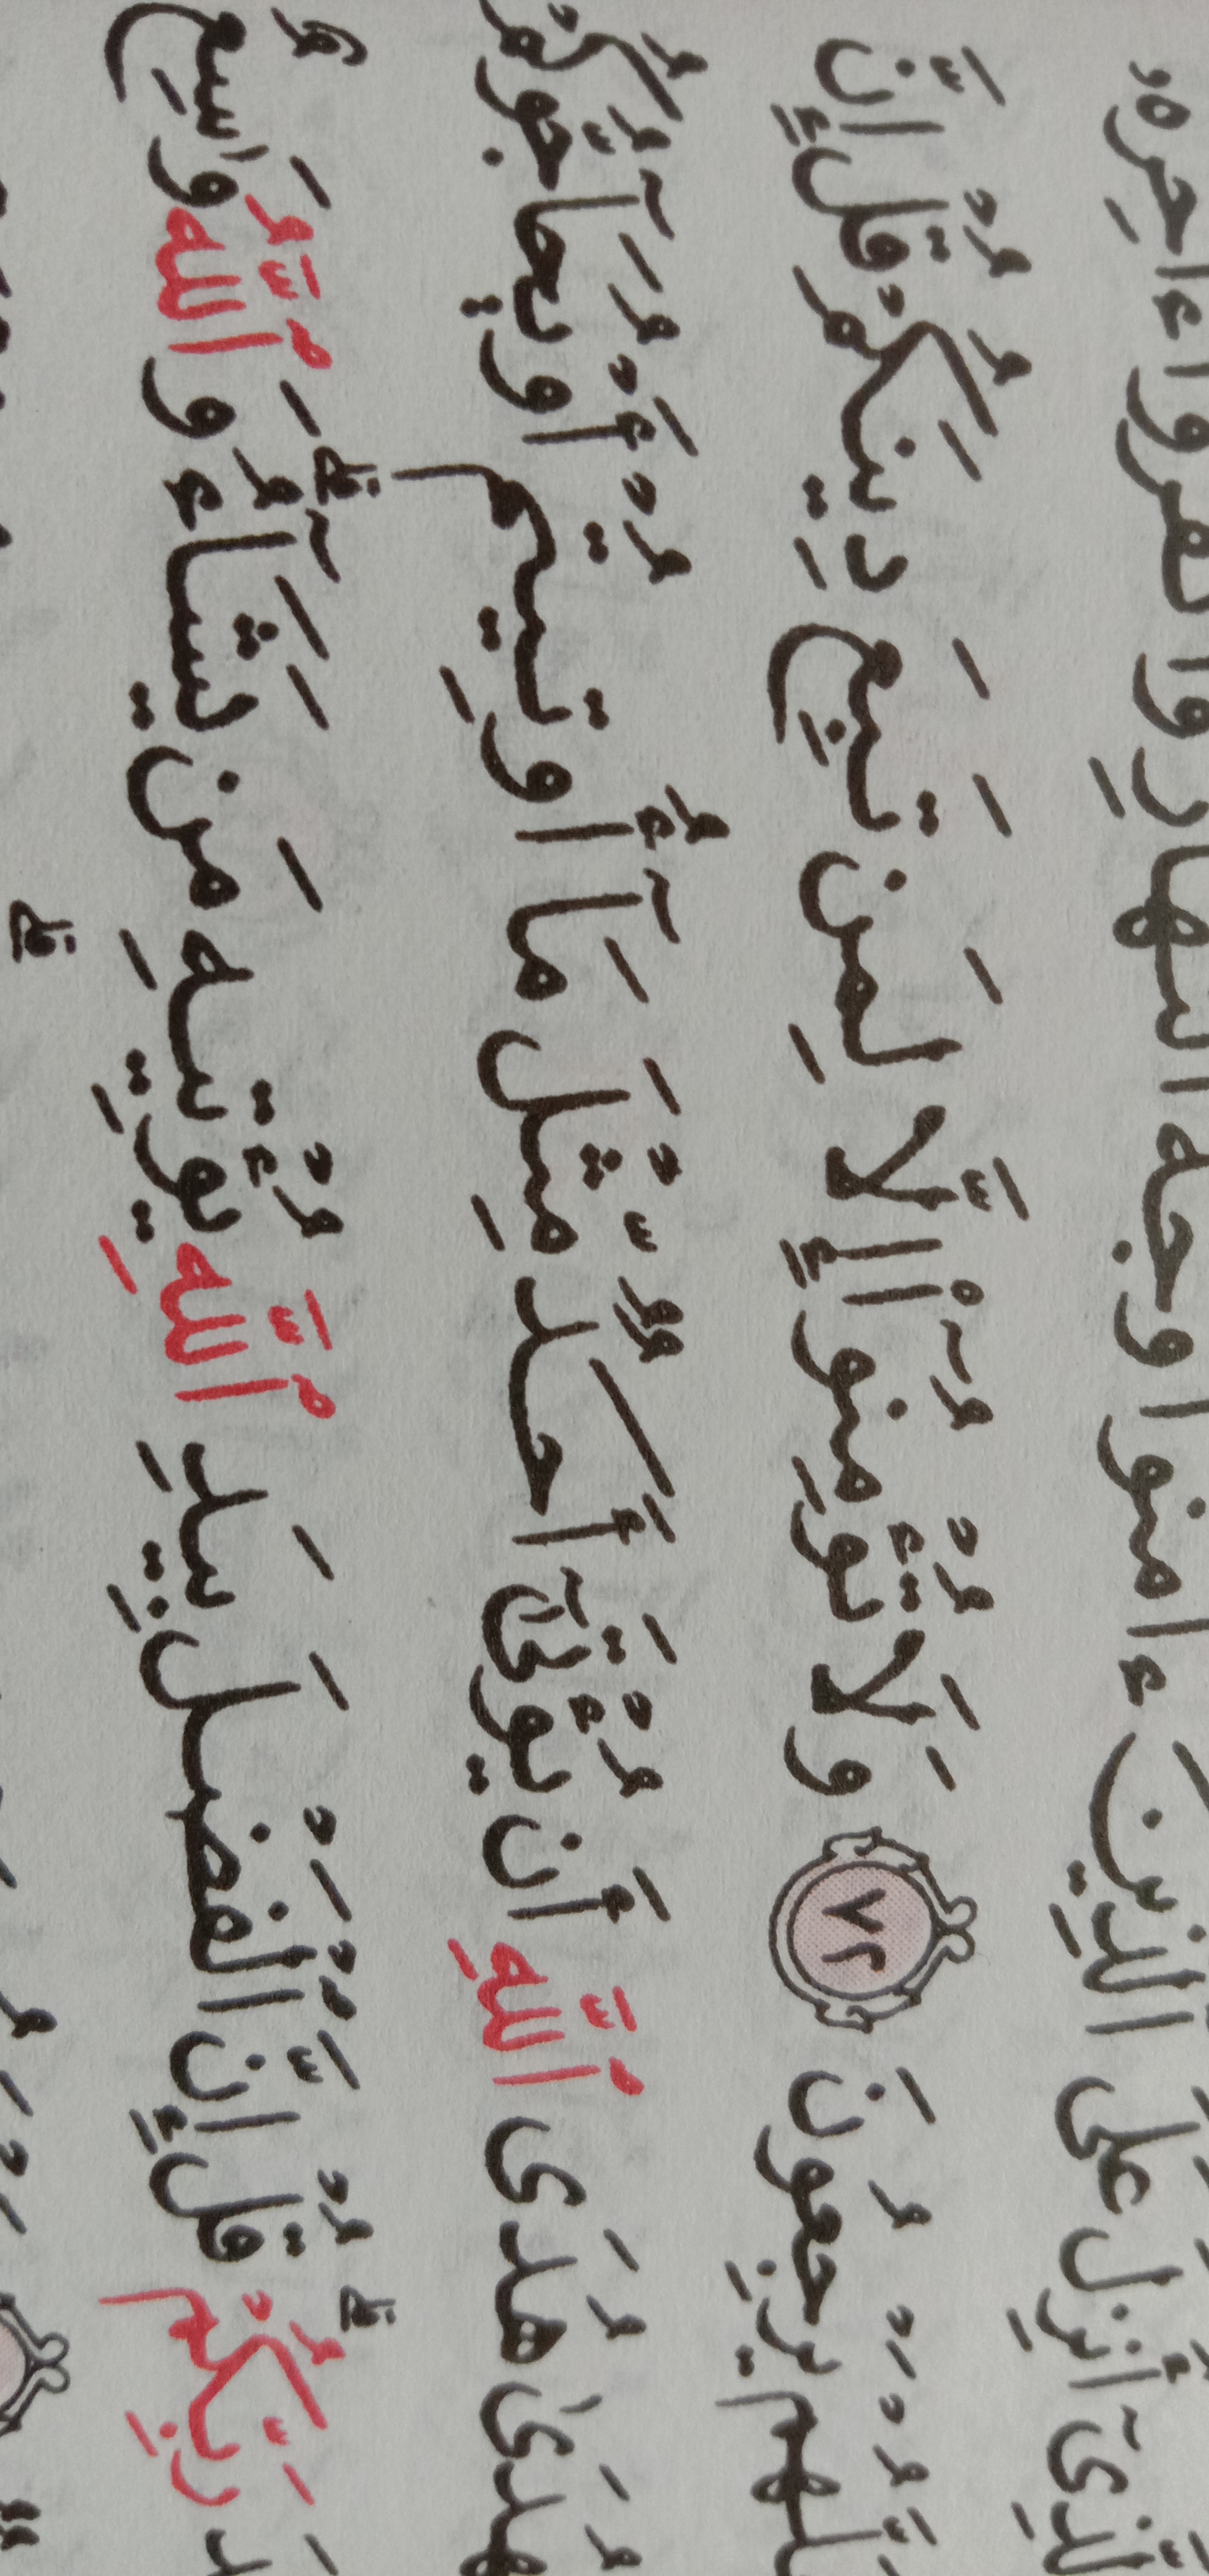 لَّذِىٓ أُنزِلَ عَلَى ٱلَّذِينَ ءَامَنُوا۟ وَجْهَ ٱلنَّهَارِ وَٱكْفُرُوٓا۟ ءَاخِرَهُۥ
لَّهُمْ يَرْجِعُونَ ٧٢ وَلَا تُؤْمِنُوٓا۟ إِلَّا لِمَن تَبِعَ دِينَكُمْ قُلْ إِنَّ
هُدَىٰ هُدَى ٱللَّهِ أَن يُؤْتَىٰٓ أَحَدٌ مِّثْلَ مَآ أُوتِيتُمْ أَوْ يُحَآجُّوكُمْ
دَ رَبِّكُمْ ۗ قُلْ إِنَّ ٱلْفَضْلَ بِيَدِ ٱللَّهِ يُؤْتِيهِ مَن يَشَآءُ ۗ وَٱللَّهُ وَٰسِعٌ